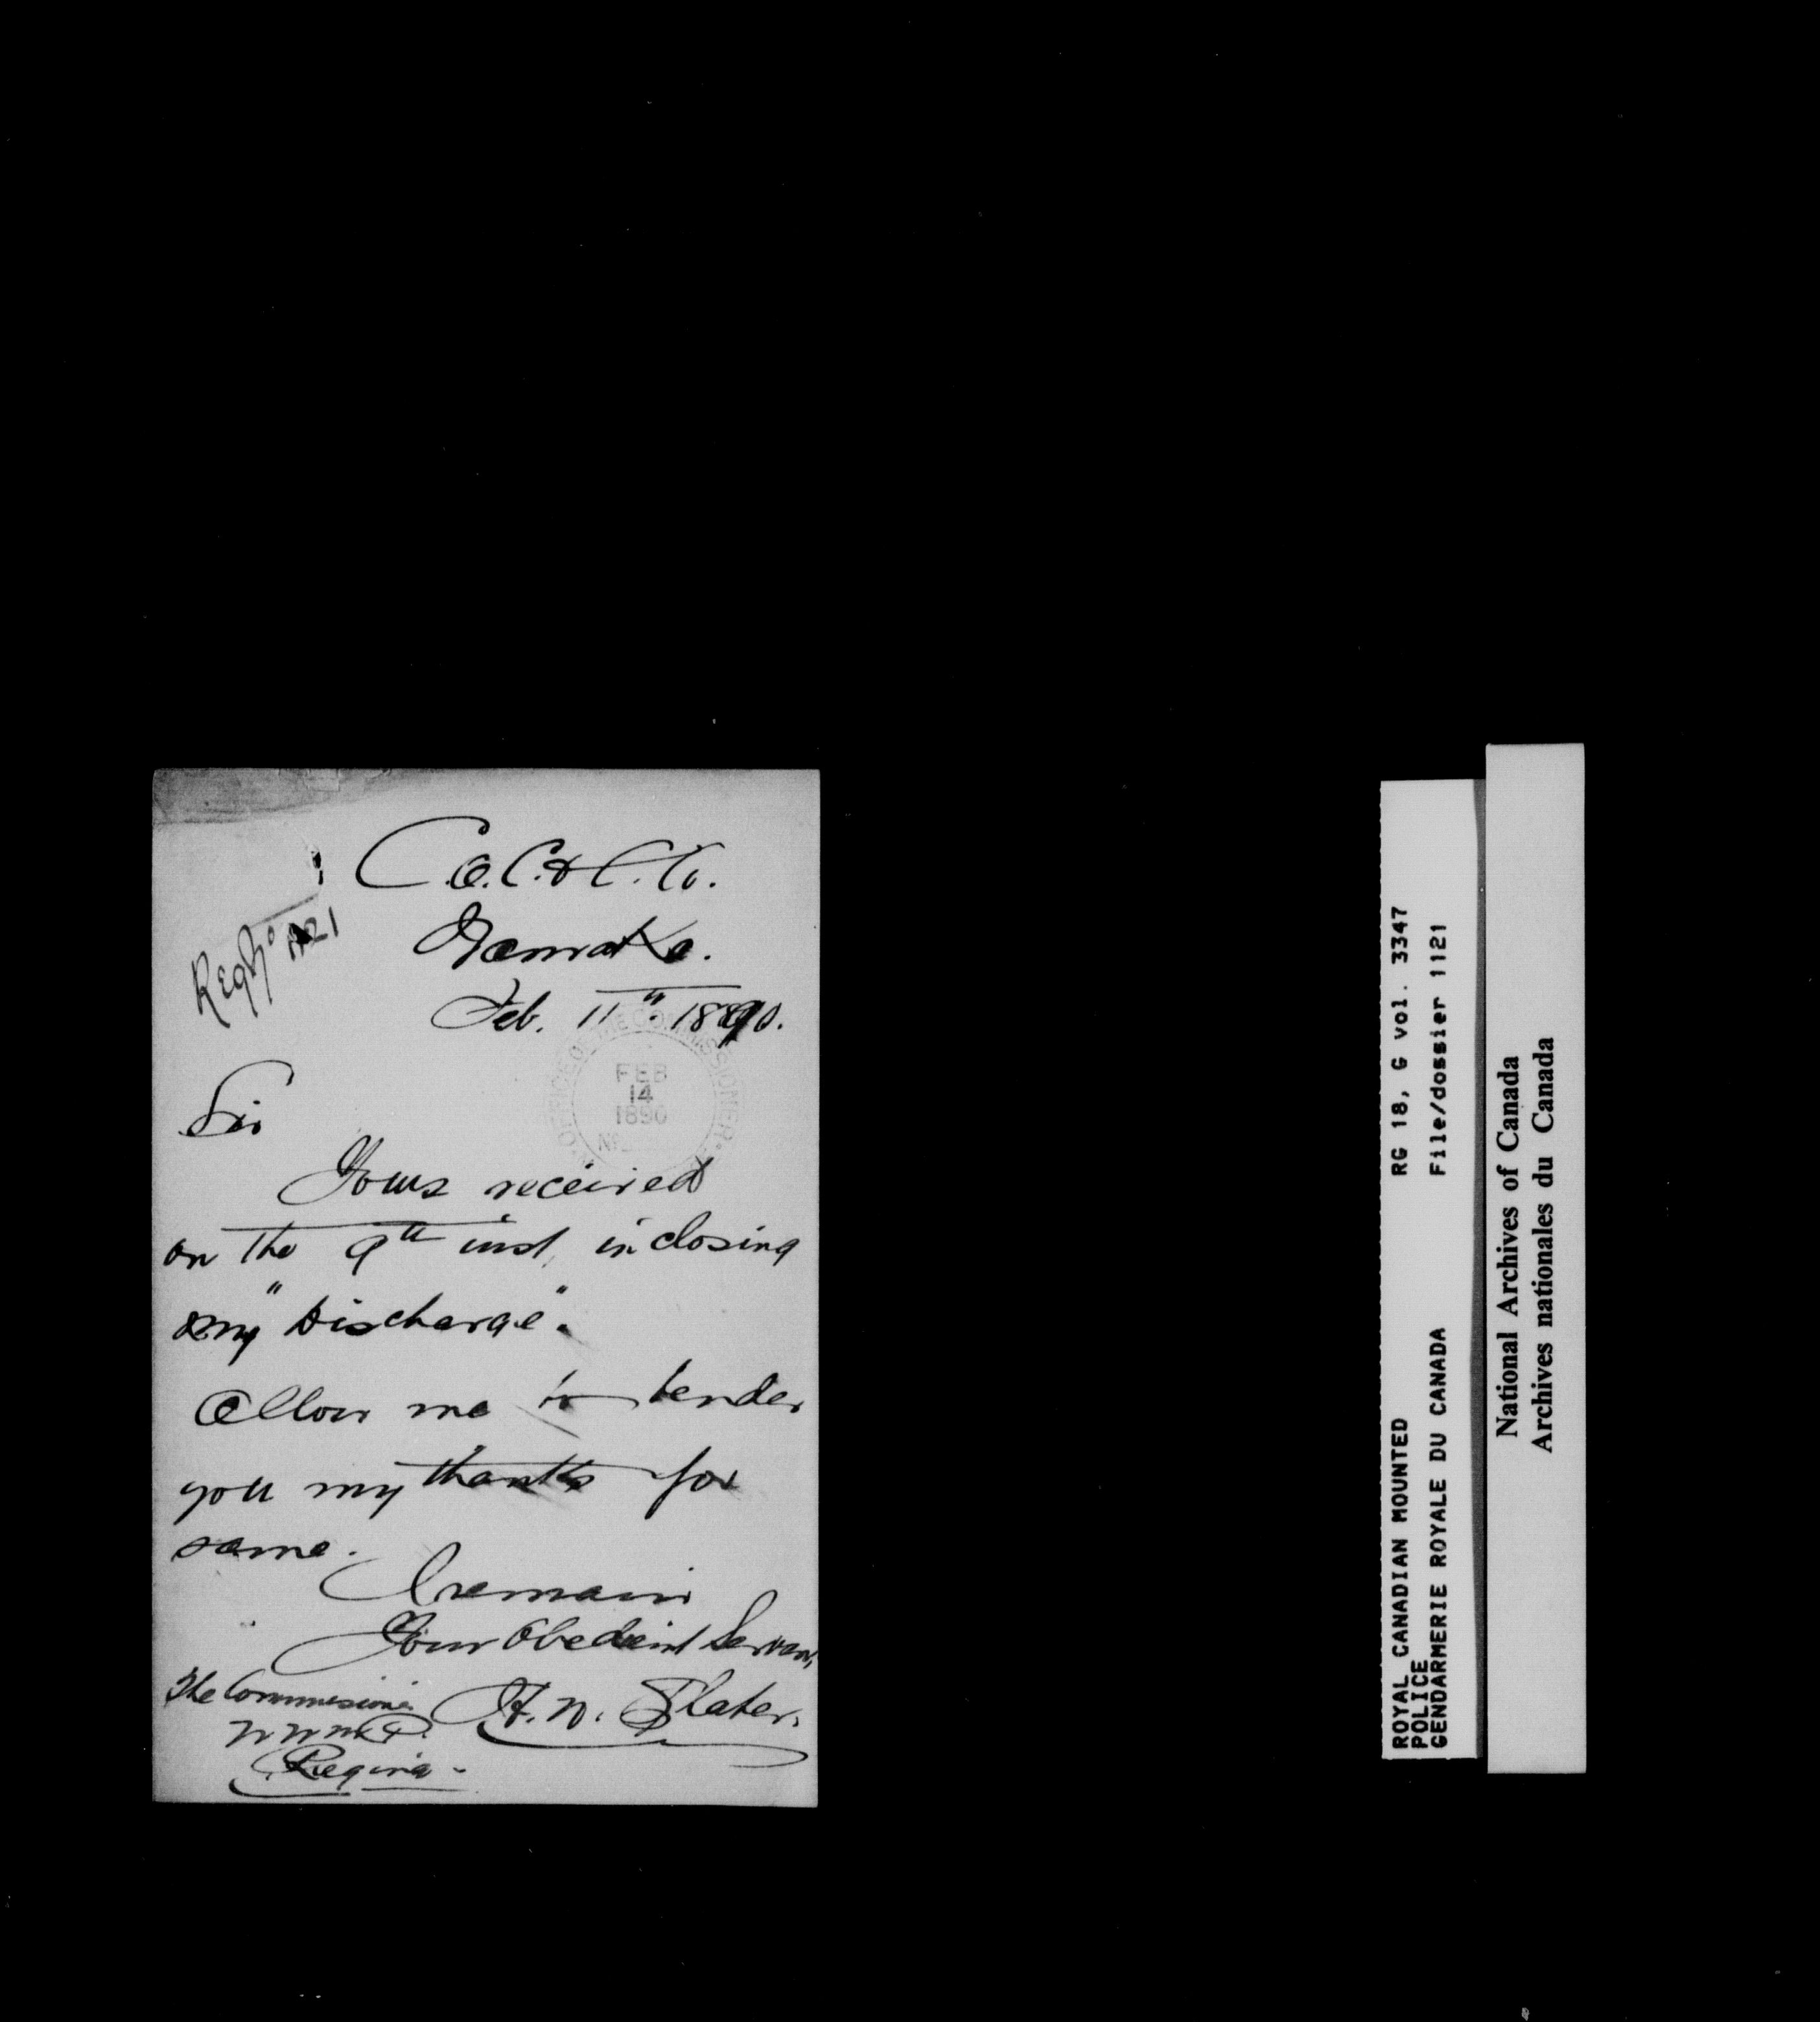 C.A.C. & C. Co.
Namaka.
Feb. 11th. 1890.
Reg No 1121
OFFICE OF THE COMMISSIONER
FEB
14
1890
Sir
Yours received
on the 9th inst, inclosing
my "Discharge".
Allow me to tender
you my thanks for
same.
I remain
Your Obedient Servant,
H. N. Slater.
The Commissioner
N W M P.
Regina -
ROYAL CANADIAN MOUNTED RG 18, G vol. 3347
POLICE File/dossier 1121
GENDARMERIE ROYALE DU CANADA
National Archives of Canada
Archives nationales du Canada